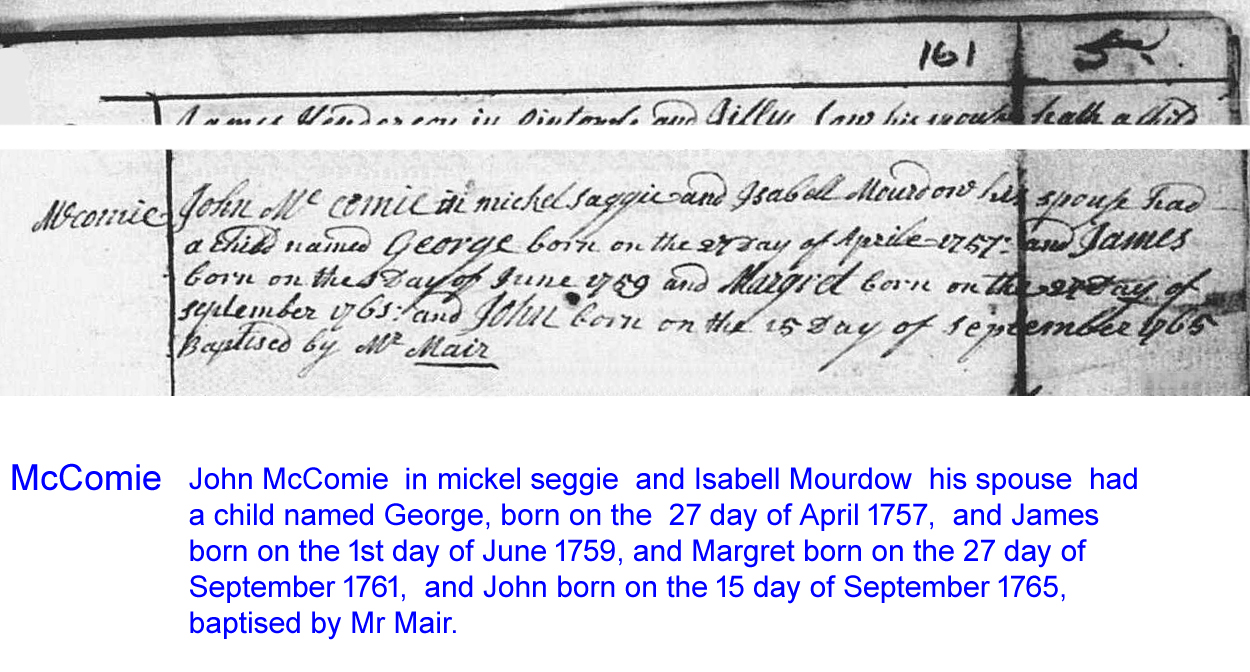 161 5
James Henderson in and Gilly Law his spouse hath a Child
Mccomie John Mc comie in mickel saggie and Isabell Mourdow his spouse had
a Child named George born on the 27 Day of Aprile 1757: and James
born on the 1 Day of June 1759 and Margret born on the 27 Day of
september 1761: and John born on the 15 Day of September 1765
Baptised by Mr Mair
McComie John McComie in mickel seggie and Isabell Mourdow his spouse had
a child named George, born on the 27 day of April 1757, and James
born on the 1st day of June 1759, and Margret born on the 27 day of
September 1761, and John born on the 15 day of September 1765,
baptised by Mr Mair.